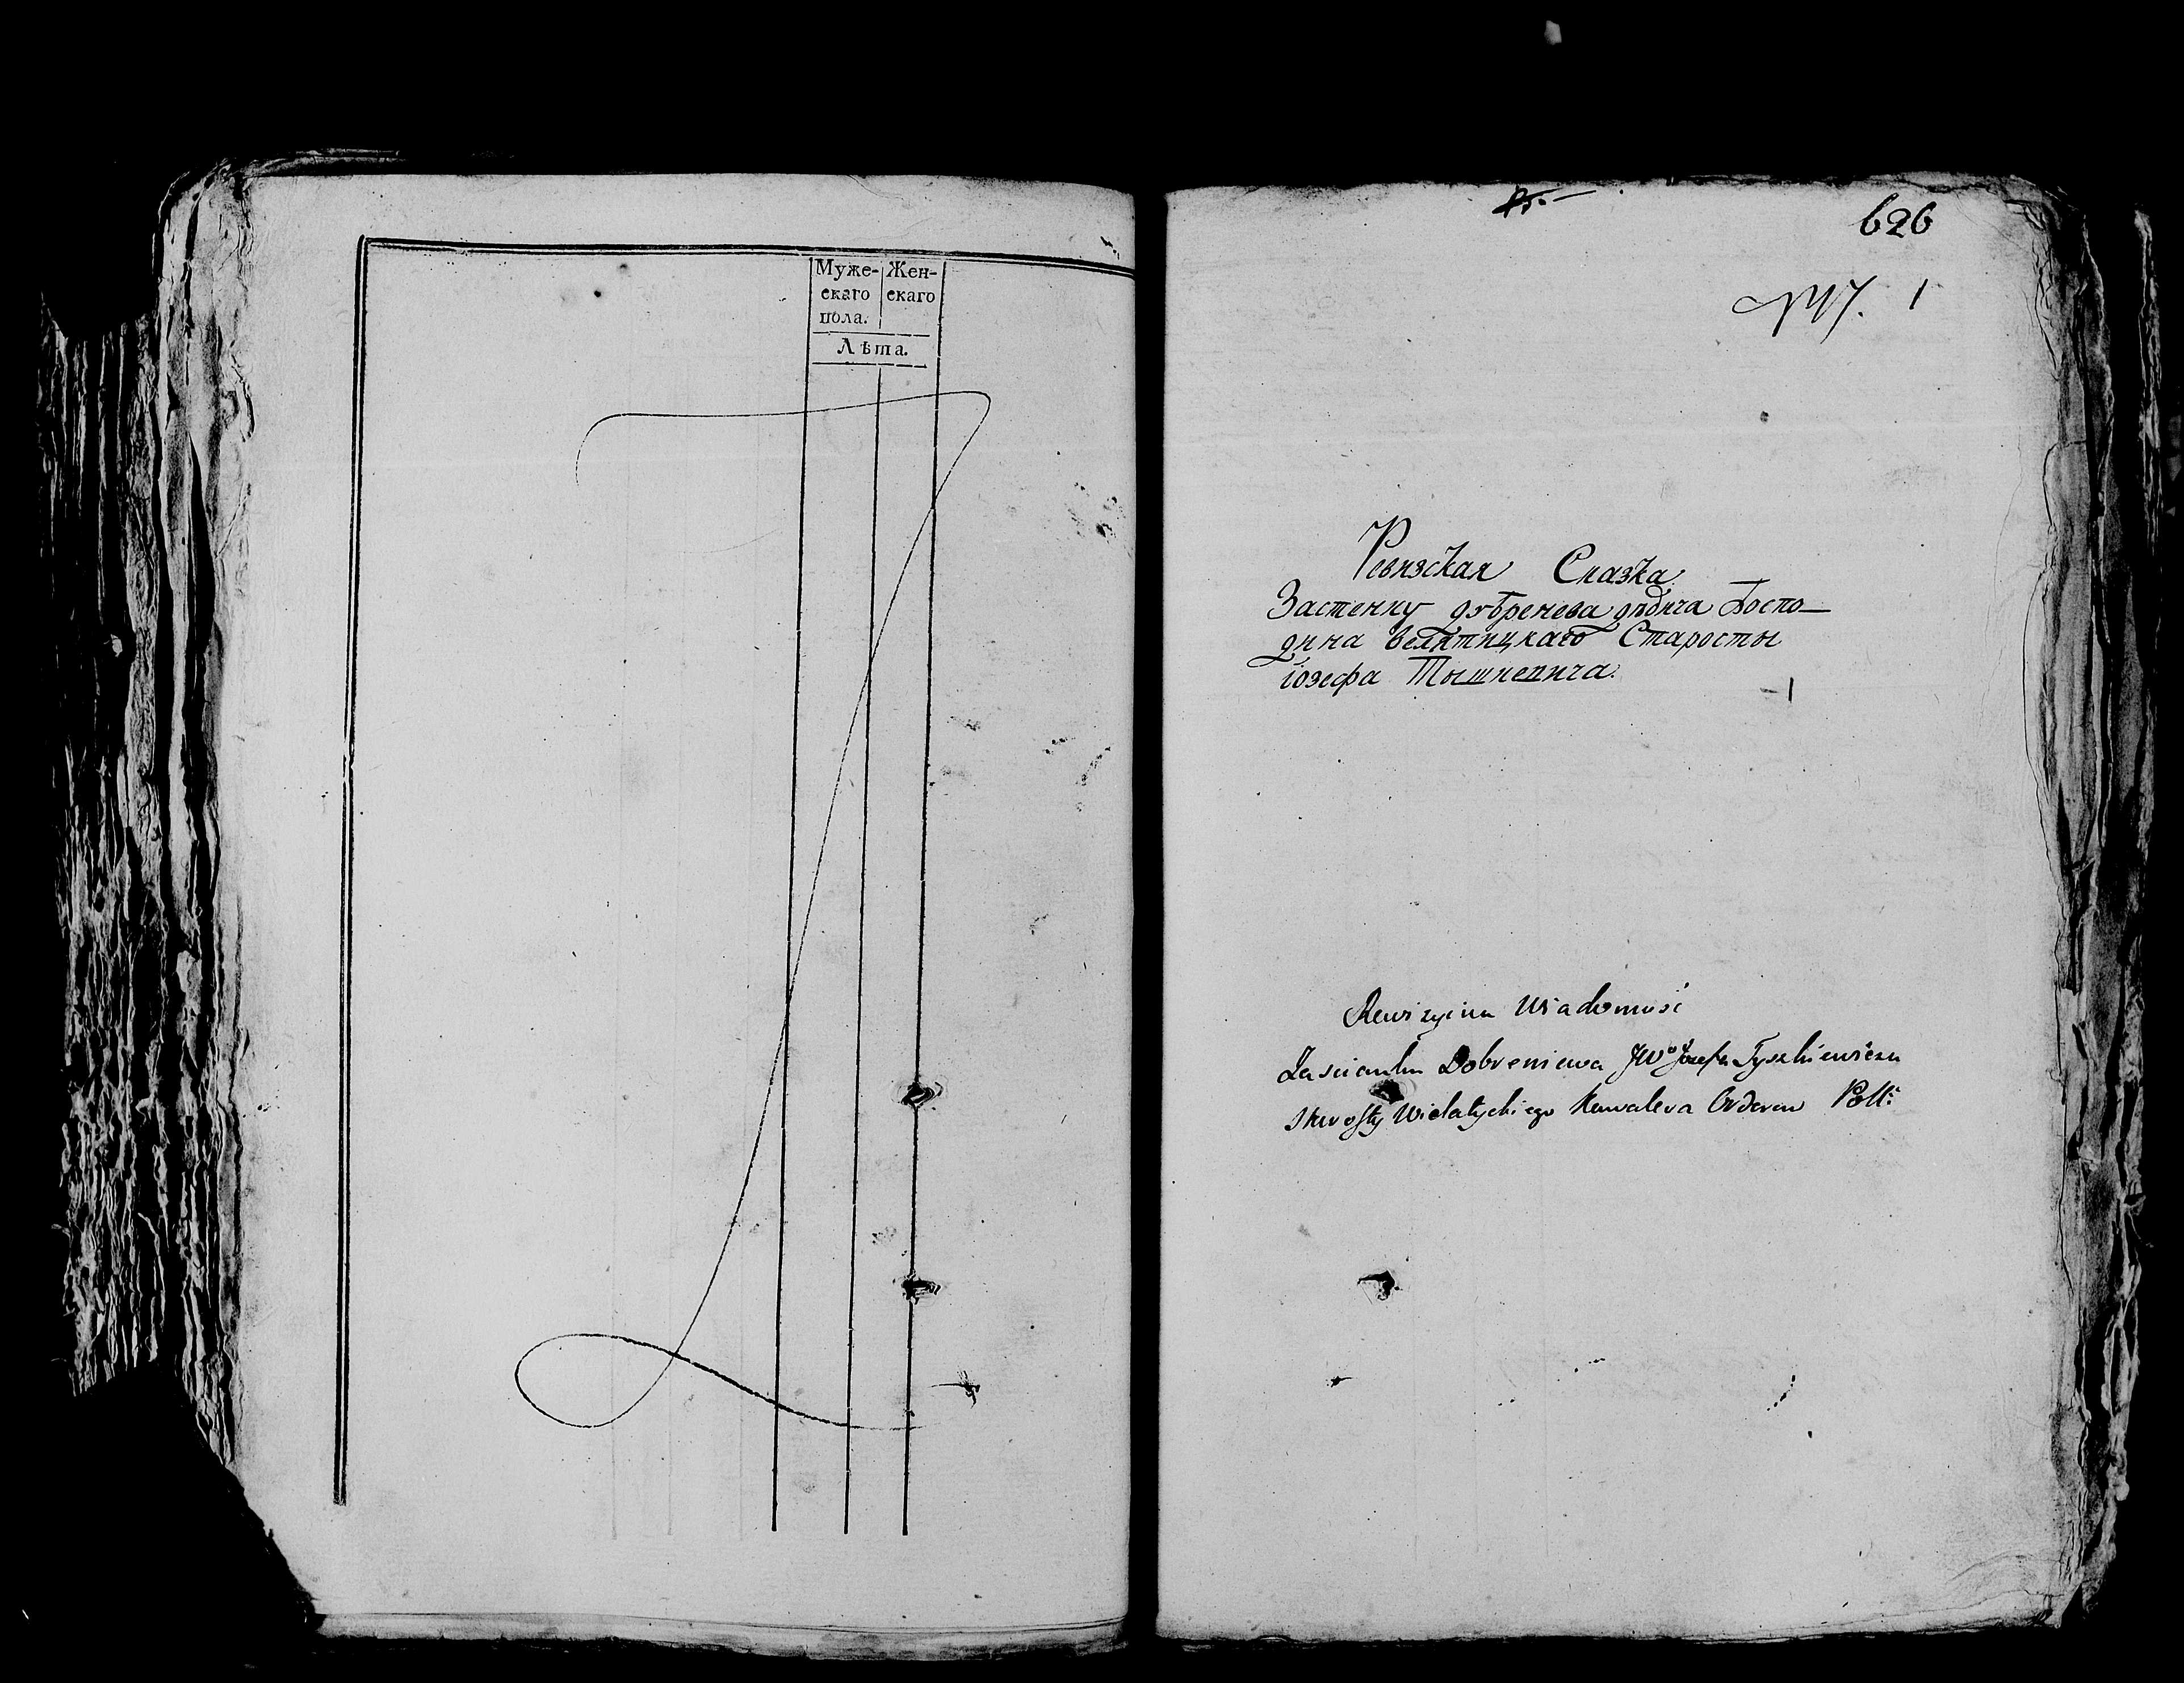 Муже- Жен-
скаго скаго
пола.
Лѣта.
626
1
Ревизская Сказка
Застенку добренева дѣдича Госпо-
дина велятицкаго Старосты
іозефа Тышкевича.
Rewizyina Wiadomość
Zascianku Dobreniewa JWo Jozefa Tyszkiewicza
Starosty Wielatyckiego Kawalera Orderow Poll: